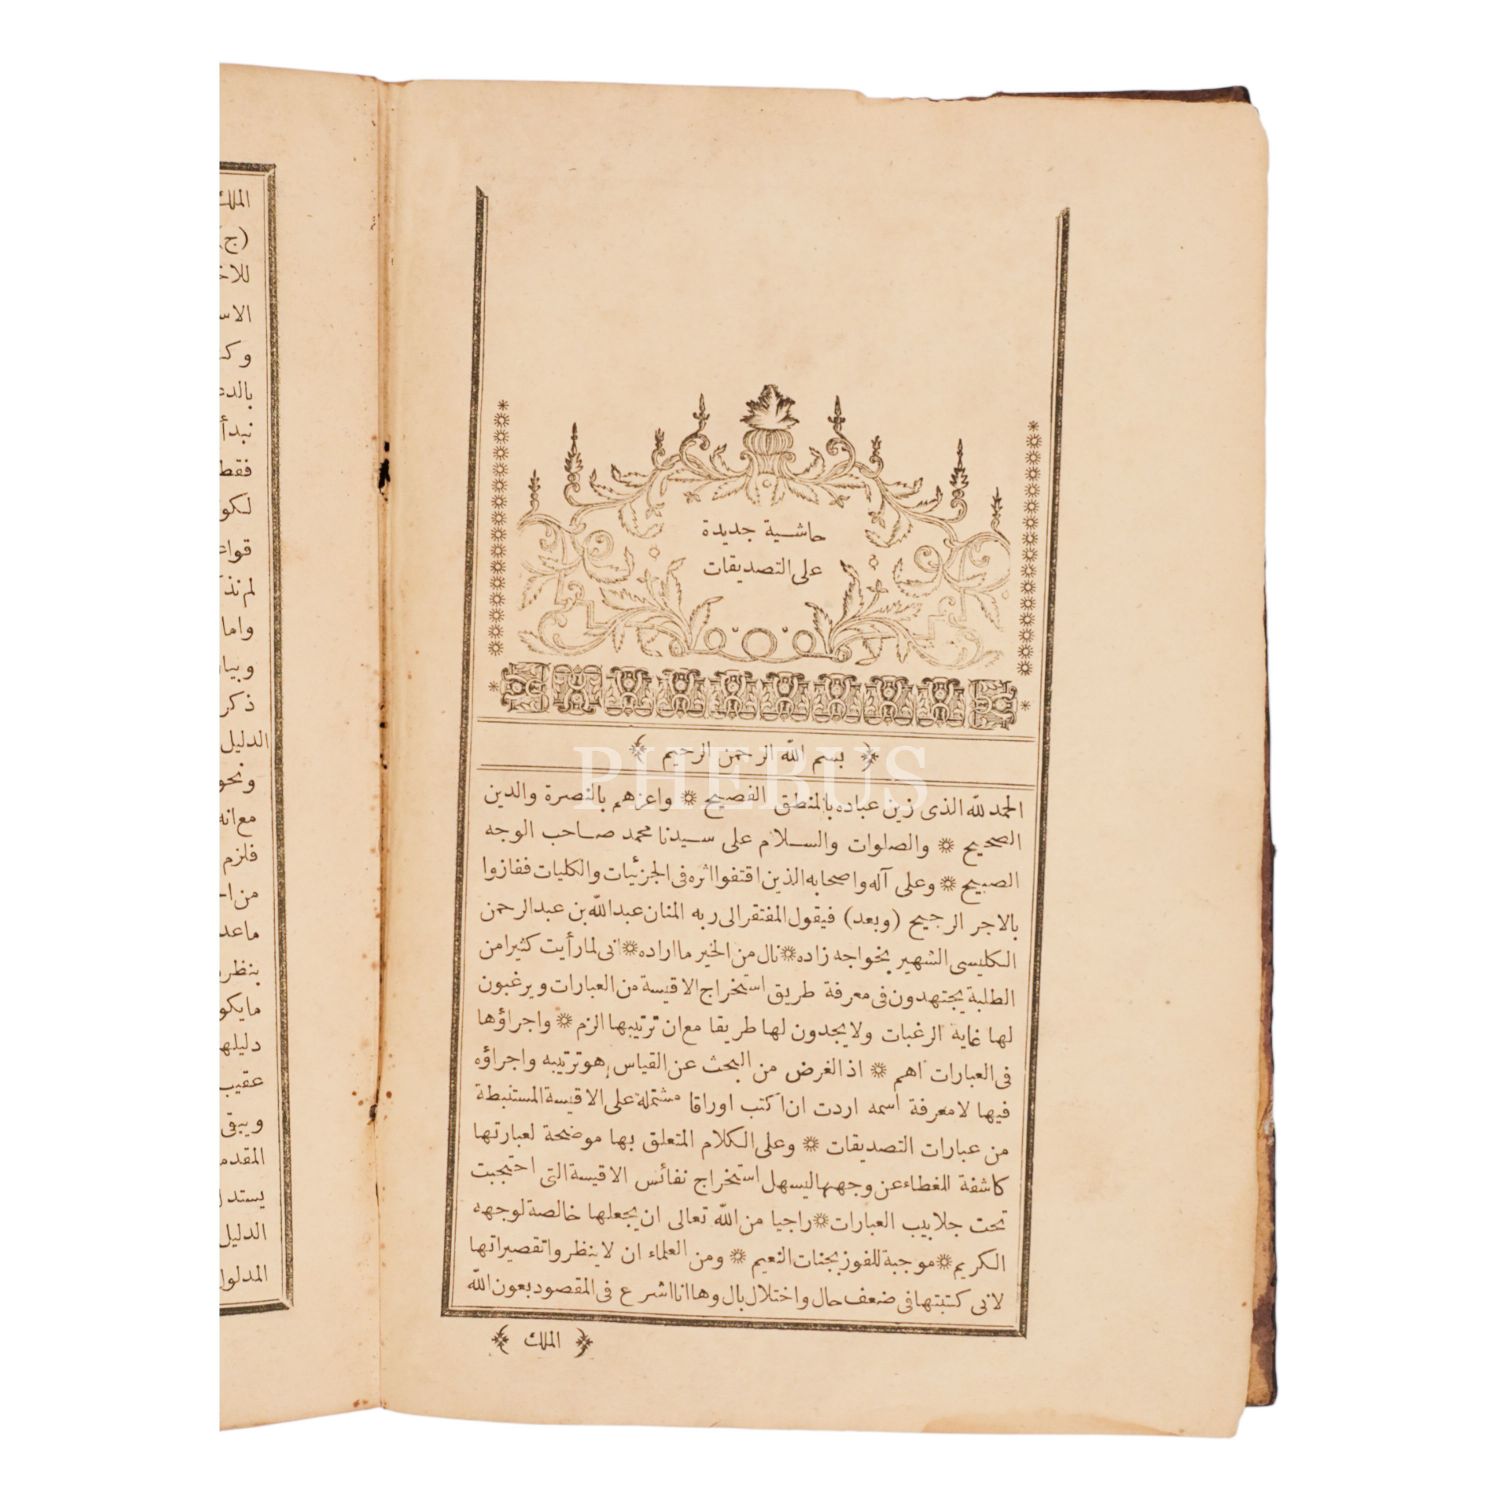 حاشية جديدة
على التصديقات
بسم الله الرحمن الرحيم
الحمد لله الذى زين عباده بالمنطق الفصيح * واعزهم بالنصرة والدين
الصحيح * والصلوات والسلام على سيدنا محمد صاحب الوجه
الصبيح * وعلى آله واصحابه الذين اقتفوا اثره فى الجزئيات والكليات ففازوا
بالاجر الرجيح (وبعد) فيقول المفتقر الى ربه المنان عبد الله بن عبد الرحمن
الكليسى الشهير بخواجه زاده * نال من الخير ما اراده * انى لما رأيت كثيرا من
الطلبة يجتهدون فى معرفة طريق استخراج الاقيسة من العبارات ويرغبون
لها غاية الرغبات ولا يجدون لها طريقا مع ان ترتيبها الزم * واجراؤها
فى العبارات اهم * اذ الغرض من البحث عن القياس هو ترتيبه واجراؤه
فيها لا معرفة اسمه اردت ان اكتب اوراقا مشتملة على الاقيسة المستنبطة
من عبارات التصديقات * وعلى الكلام المتعلق بها موضحة لعبارتها
كاشفة للغطاء عن وجهها ليسهل استخراج نفائس الاقيسة التى احتجبت
تحت جلابيب العبارات * راجيا من الله تعالى ان يجعلها خالصة لوجهه
الكريم * موجبة للفوز بجنات النعيم * ومن العلماء ان لا ينظروا تقصيراتها
لانى كتبتها فى ضعف حال واختلال بال وها انا اشرع فى المقصود بعون الله
الملك
الملك
(ج)
وكـ
نبدأ
فقط
قواعـ
واما
ذكر
الدليل
مع انه
فلزم
دليلها
عقيب
الدليل
PHEBUS